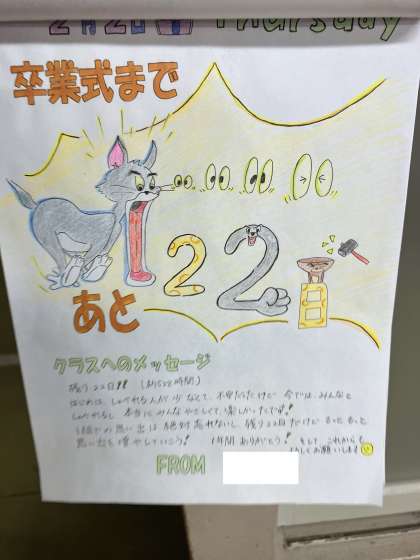 2月2日 Thursday
卒業式まで
あと
22日
クラスへのメッセージ
残り22日!! (約528時間)
はじめは、しゃべれる人が少なくて、不安だったけど 今では、みんなと
しゃべれるし 本当にみんなやさしくて、楽しかったです!
1組での思い出は絶対忘れないし、残り22日だけど もっと もっと
思い出を増やしていこう! 1年間 ありがとう! そして これからも
よろしくお願いします
FROM